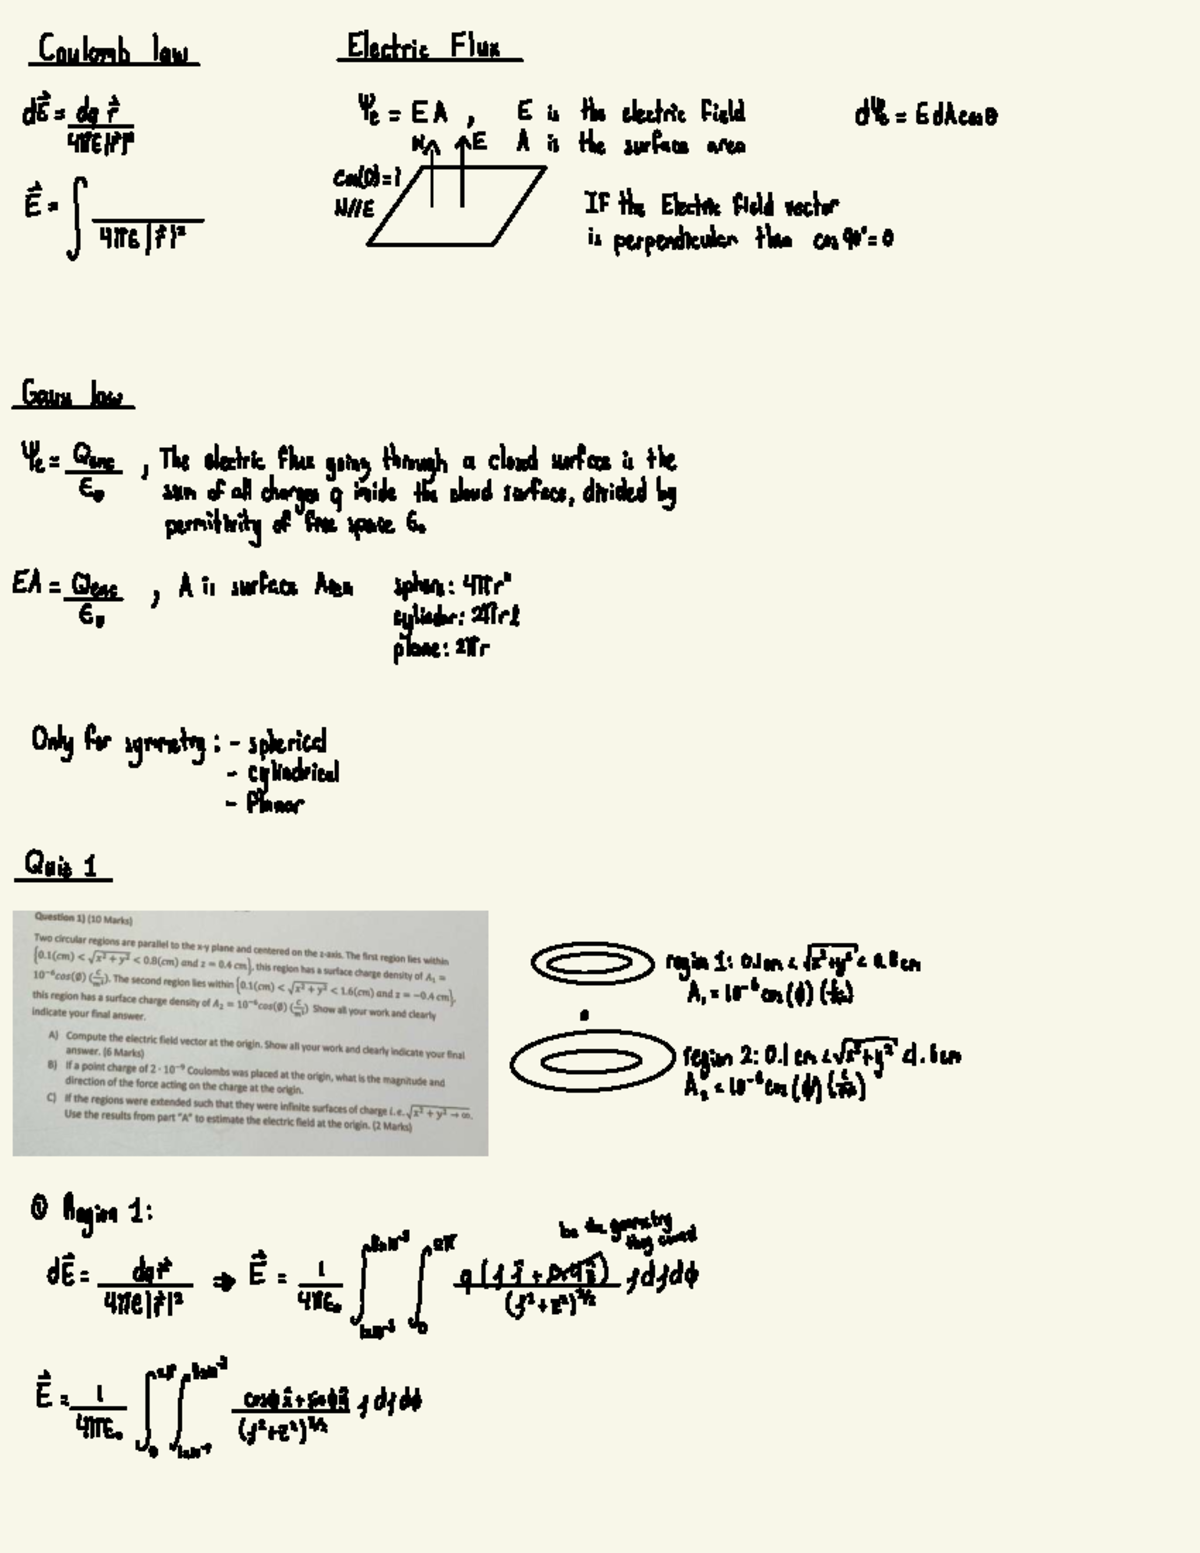 Coulomb law
Electric Flux
dE⃗ = dq r̂ / 4πε|r⃗|²
E⃗ = ∫ / 4πε|r⃗|²
Ψe = EA , E is the electric field
A is the surface area
dΨe = E dA cosθ
N E
Cos(0)=1
N//E
IF the Electric field vector
is perpendicular then cos 90° = 0
Gauss law
Ψe = Qenc / ε₀ , The electric flux going through a closed surface is the
sum of all charges q inside the closed surface, divided by
permitivity of free space ε₀
EA = Qenc / ε₀ , A is surface Area
sphere: 4πr²
cylinder: 2πrl
plane: 2πr
Only for symmetry: - spherical
- cylindrical
- Planar
Quiz 1
Question 1) (10 Marks)
Two circular regions are parallel to the x-y plane and centered on the z-axis. The first region lies within
{0.1(cm) < √x² + y² < 0.8(cm) and z = 0.4 cm}, this region has a surface charge density of A₁ =
10⁻⁶cos(Ø) (C/m²). The second region lies within {0.1(cm) < √x² + y² < 1.6(cm) and z = −0.4 cm},
this region has a surface charge density of A₂ = 10⁻⁶cos(Ø) (C/m²) Show all your work and clearly
indicate your final answer.
A) Compute the electric field vector at the origin. Show all your work and clearly indicate your final
answer. (6 Marks)
B) If a point charge of 2 · 10⁻⁹ Coulombs was placed at the origin, what is the magnitude and
direction of the force acting on the charge at the origin.
C) If the regions were extended such that they were infinite surfaces of charge i.e. √x² + y² → ∞.
Use the results from part "A" to estimate the electric field at the origin. (2 Marks)
region 1: 0.1cm < √x²+y² < 0.8cm
A₁ = 10⁻⁶ cos(ϕ) (C/m²)
region 2: 0.1 cm < √x²+y² < 1.6cm
A₂ = 10⁻⁶ cos(ϕ) (C/m²)
Region 1:
be the geometry
they cancel
dE⃗ = dq r⃗ / 4πε|r⃗|² ⇒ E⃗ = 1 / 4πε₀ ∫ ∫ / (ρ²+z²)^3/2 ρdρdϕ
E⃗ = 1 / 4πε₀ ∫ ∫ cosϕ x̂ + sinϕ ŷ / (ρ²+z²)^3/2 ρ dρ dϕ